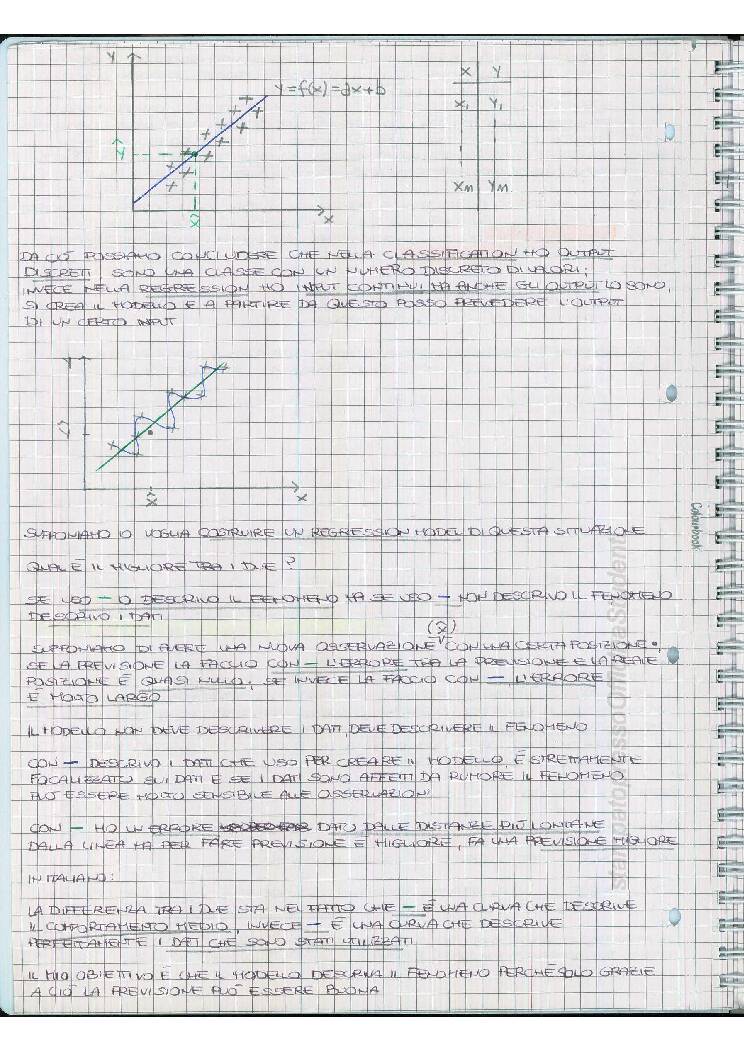 Y
Y=f(x)=ax+b
X Y
X₁ Y₁
Ŷ
Xm Ym
X̂
X
DA CIÒ POSSIAMO CONCLUDERE CHE NELLA CLASSIFICATION HO OUTPUT
DISCRETI, SONO UNA CLASSE CON UN NUMERO DISCRETO DI VALORI;
INVECE NELLA REGRESSION HO INPUT CONTINUI MA ANCHE GLI OUTPUT LO SONO,
SI CREA IL MODELLO E A PARTIRE DA QUESTO POSSO PREVEDERE L'OUTPUT
DI UN CERTO INPUT
Y
Ŷ
X̂
X
SUPPONIAMO IO VOGLIA COSTRUIRE UN REGRESSION MODEL DI QUESTA SITUAZIONE
QUAL È IL MIGLIORE TRA I DUE?
SE USO — IO DESCRIVO IL FENOMENO MA SE USO — NON DESCRIVO IL FENOMENO
DESCRIVO I DATI
(X̂)
SUPPONIAMO DI AVERE UNA NUOVA OSSERVAZIONE CON UNA CERTA POSIZIONE •,
SE LA PREVISIONE LA FACCIO CON — L'ERRORE TRA LA PREVISIONE E LA REALE
POSIZIONE È QUASI NULLO; SE INVECE LA FACCIO CON — L'ERRORE
È MOLTO LARGO
IL MODELLO NON DEVE DESCRIVERE I DATI, DEVE DESCRIVERE IL FENOMENO
CON — DESCRIVO I DATI CHE USO PER CREARE IL MODELLO, È STRETTAMENTE
FOCALIZZATO SUI DATI E SE I DATI SONO AFFETTI DA RUMORE IL FENOMENO
PUÒ ESSERE MOLTO SENSIBILE ALLE OSSERVAZIONI
CON — HO UN ERRORE DATO DALLE DISTANZE PIÙ LONTANE
DALLA LINEA MA PER FARE PREVISIONE È MIGLIORE, FA UNA PREVISIONE MIGLIORE
IN ITALIANO:
LA DIFFERENZA TRA I DUE STA NEL FATTO CHE — È UNA CURVA CHE DESCRIVE
IL COMPORTAMENTO MEDIO, INVECE — È UNA CURVA CHE DESCRIVE
PERFETTAMENTE I DATI CHE SONO STATI UTILIZZATI
IL MIO OBIETTIVO È CHE IL MODELLO DESCRIVA IL FENOMENO PERCHÉ SOLO GRAZIE
A CIÒ LA PREVISIONE PUÒ ESSERE BUONA
Colourbook